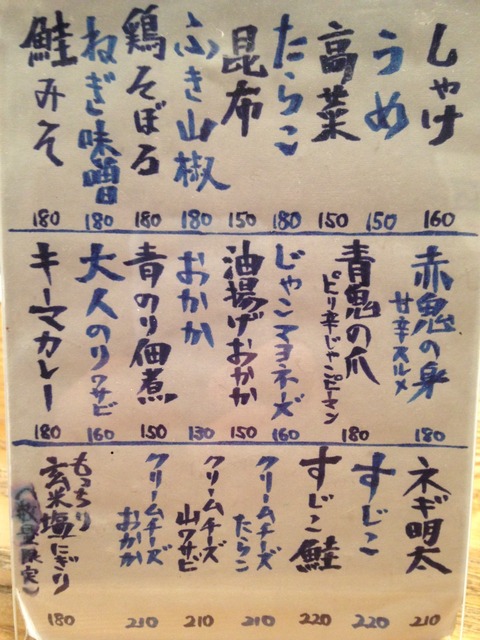 しゃけ
160
うめ
150
高菜
150
たらこ
180
昆布
150
ふき山椒
180
鶏そぼろ
180
ねぎ味噌
180
鮭みそ
180
赤鬼の身
甘辛スルメ
180
青鬼の爪
ピリ辛じゃこピーマン
180
じゃこマヨネーズ
160
油揚げおかか
150
おかか
130
青のり佃煮
150
大人のりワサビ
160
キーマカレー
180
ネギ明太
210
すじこ
220
すじこ鮭
220
クリームチーズ
たらこ
210
クリームチーズ
山ワサビ
210
クリームチーズ
おかか
210
もっちり
玄米塩にぎり
(数量限定)
180